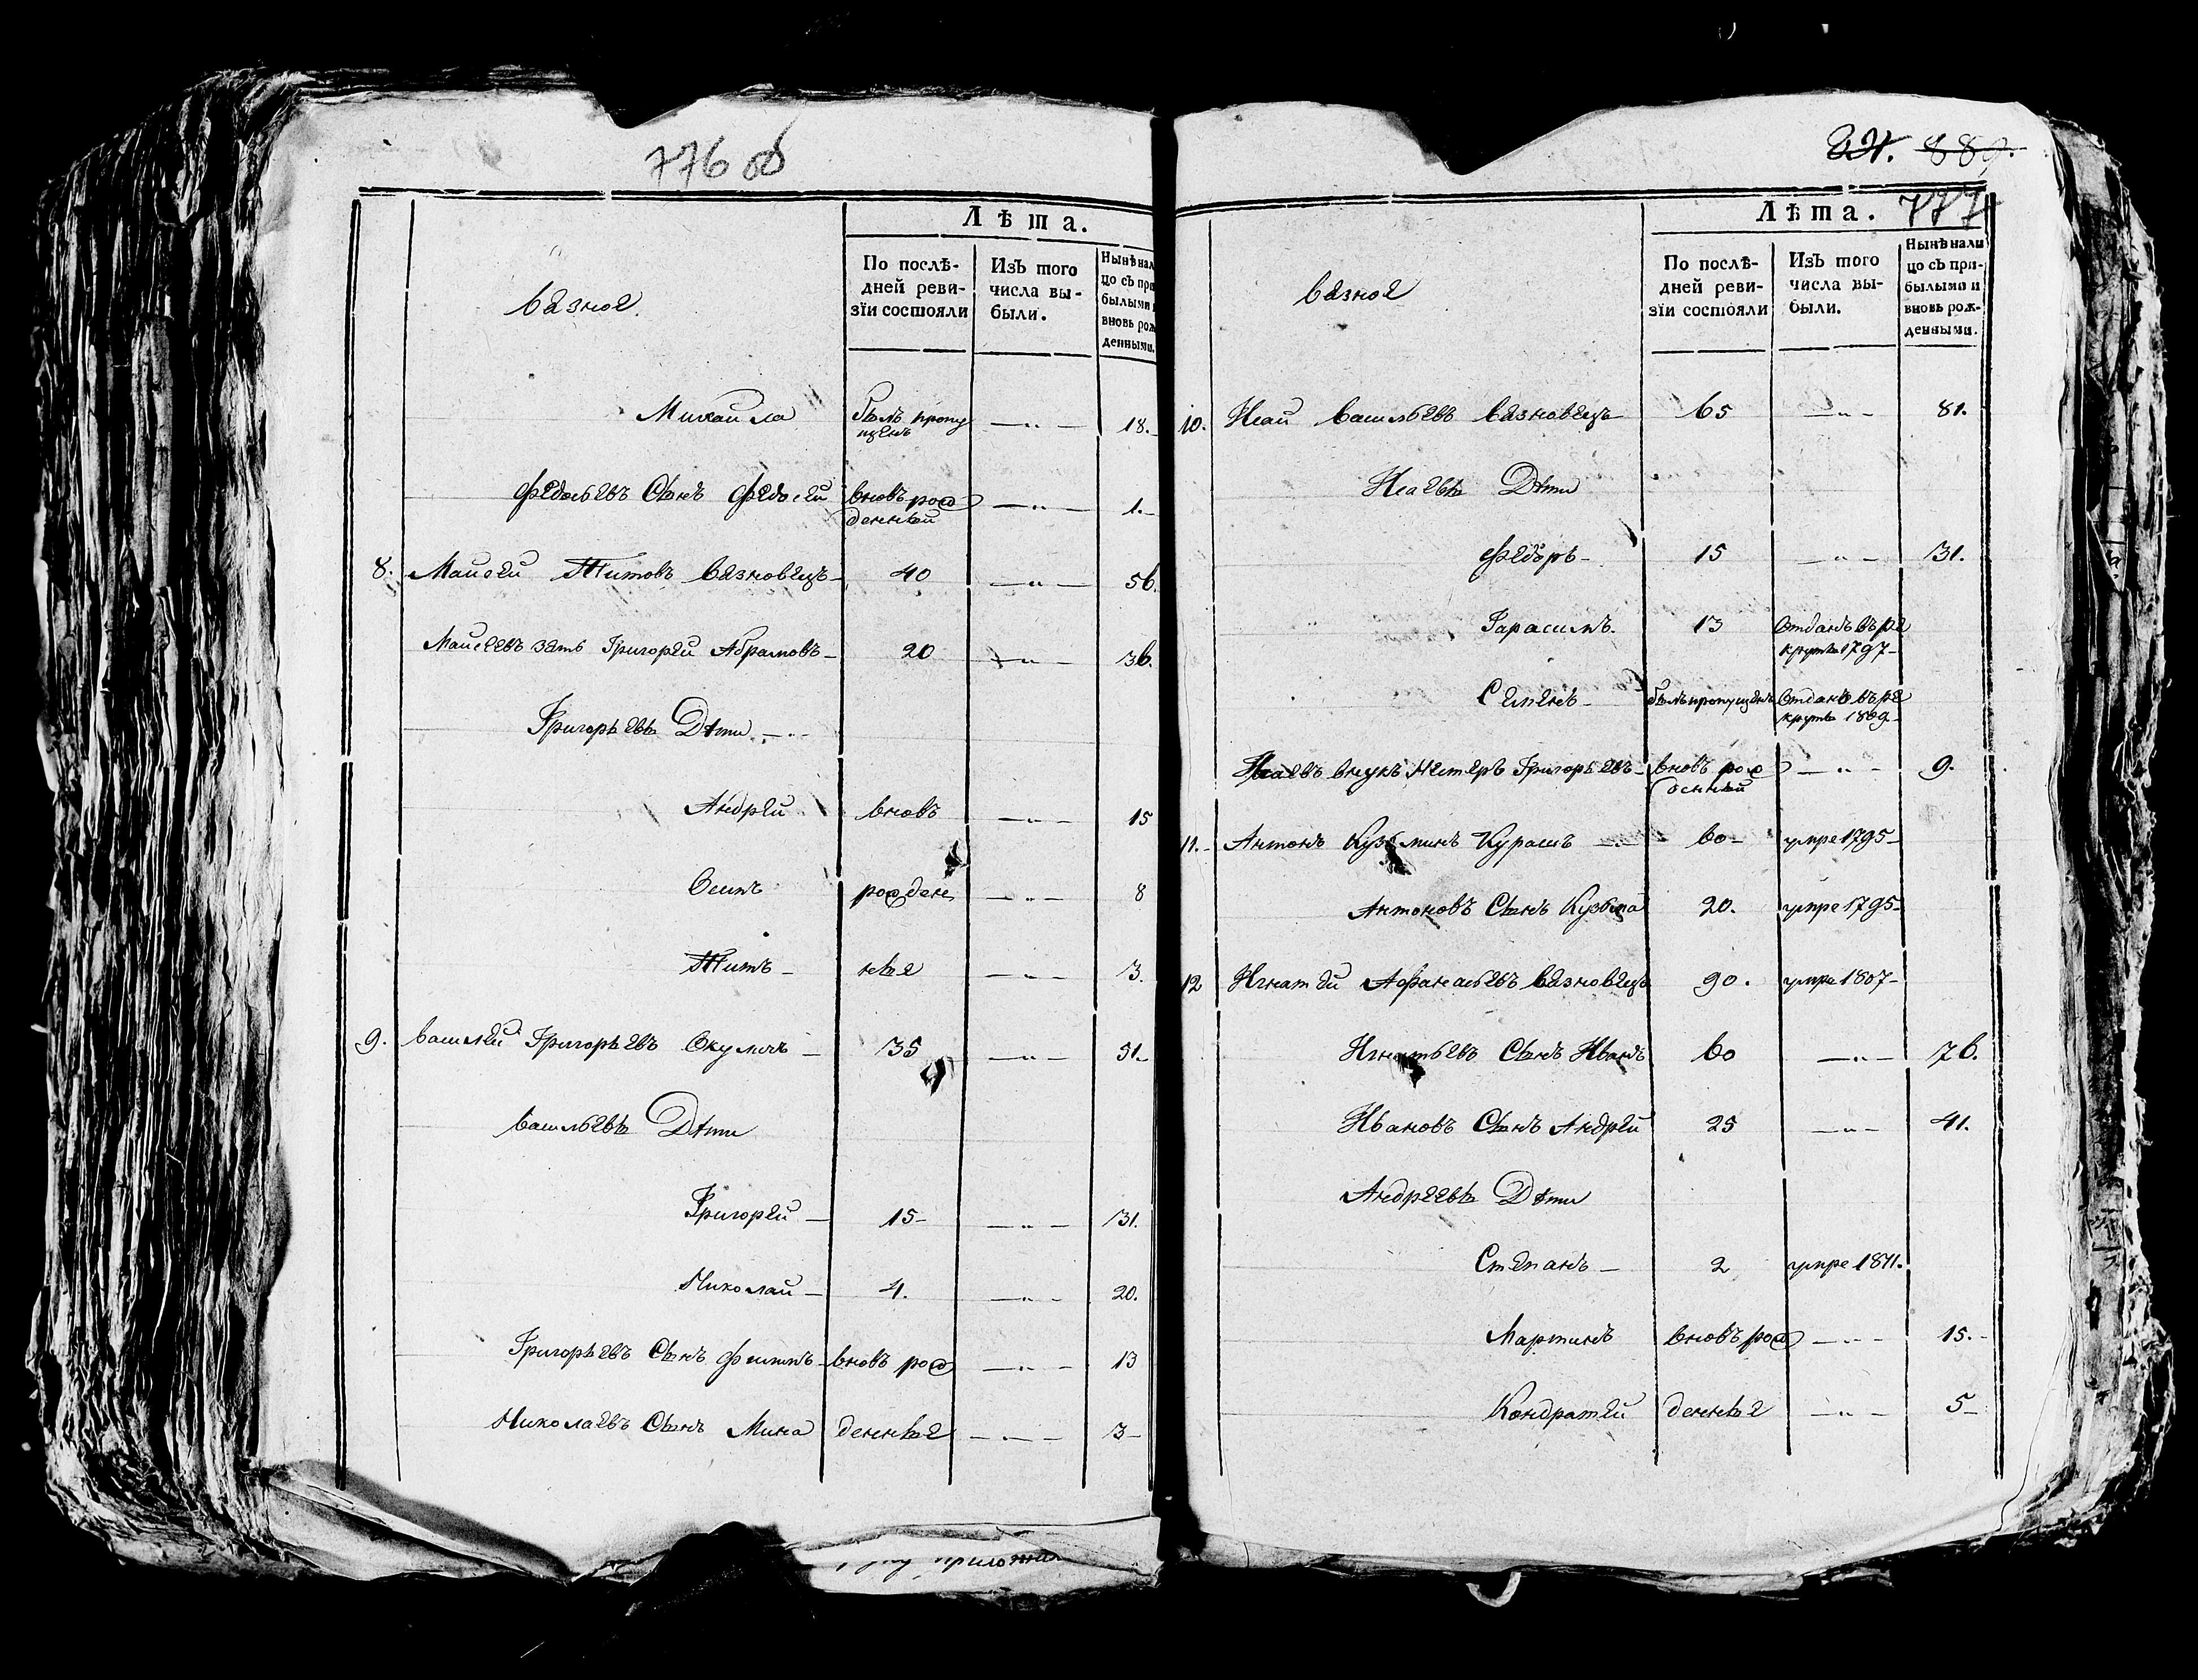 776 об
Лѣта.
По послѣ-
дней реви-
зіи состояли
Изъ того
числа вы-
были.
Нынѣ нал
цо съ при
былыми и
вновь рож
денными.
Вязное.
Михайла былъ пропу
щенъ — „ — 18.
Федосѣевъ Сынъ Федосей вновъ рож
денный — „ — 1.
8. Мойсей Титовъ Вязновецъ 40 — „ — 56.
Мойсеевъ зять Григорей Абрамовъ 20 — „ — 36.
Григорьевы Дѣти
Андрей вновъ — „ — 15
Осипъ рожден — „ — 8
Титъ ные — „ — 3.
9. Василей Григорьевъ Окуличъ 35 — „ — 51.
Васильевы Дѣти
Григорей 15 — „ — 31.
Николай 4. — „ — 20.
Григорьевъ Сынъ Филипъ вновъ рож — „ — 13
Николаевъ Сынъ Мина денные — „ — 3
приложил
889.
777
Лѣта.
По послѣ-
дней реви-
зіи состояли
Изъ того
числа вы-
были.
Нынѣ нали
цо съ при-
былыми и
вновь рож-
денными.
Вязное
10. Исай Васильевъ Вязновецъ 65 — „ — 81.
Исаевы Дѣти
Федоръ 15 — „ — 31.
Гарасимъ. 13 отданъ въ ре
круты 1797
Семенъ былъ пропущенъ отданъ въ ре
круты 1809
Исаевъ внукъ Нестеръ Григорьевъ вновъ рож
денный — „ — 9.
11. Антонъ Кузьминъ Курашъ 60 умре 1795
Антоновъ Сынъ Кузьма 20. умре 1795
12 Игнатей Афанасьевъ Вязновецъ 90. умре 1807
Игнатьевъ Сынъ Иванъ 60 — „ — 76.
Ивановъ Сынъ Андрей 25 — „ — 41.
Андреевы Дѣти
Степанъ 2 умре 1811.
Мартинъ вновъ рож — „ — 15.
Кондратей денные — „ — 5